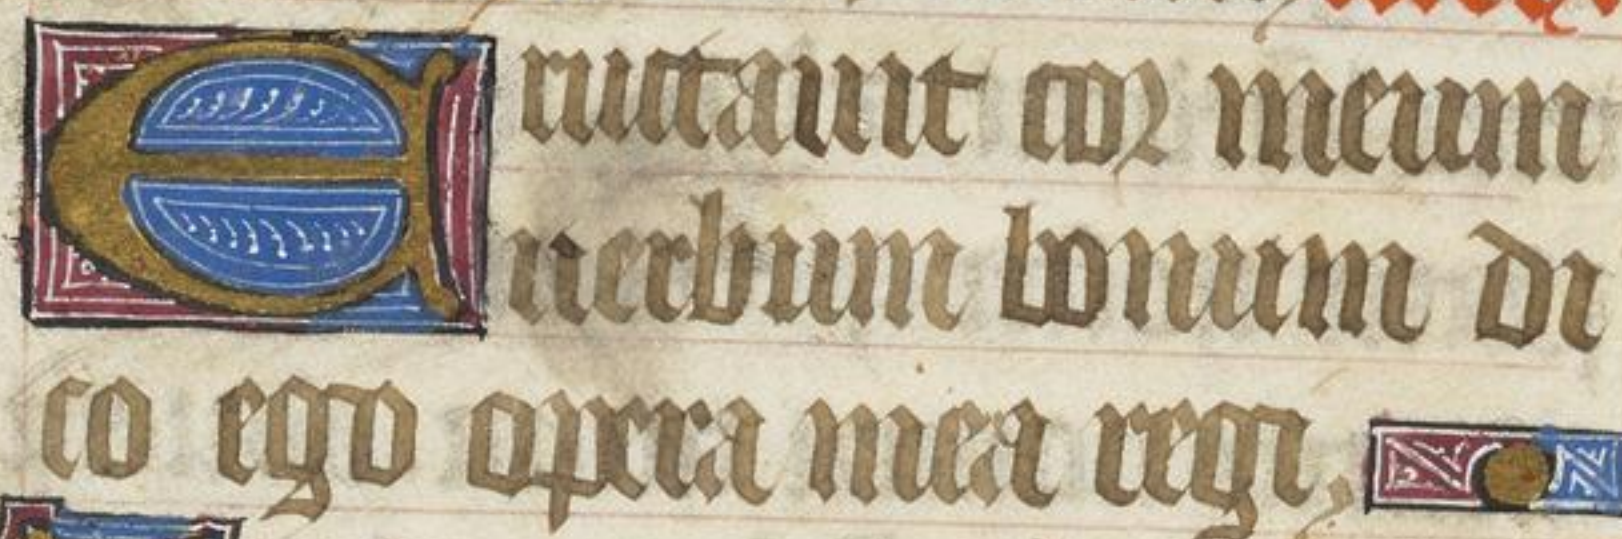 Eructauit cor meum
uerbum bonum di
co ego opera mea regi,